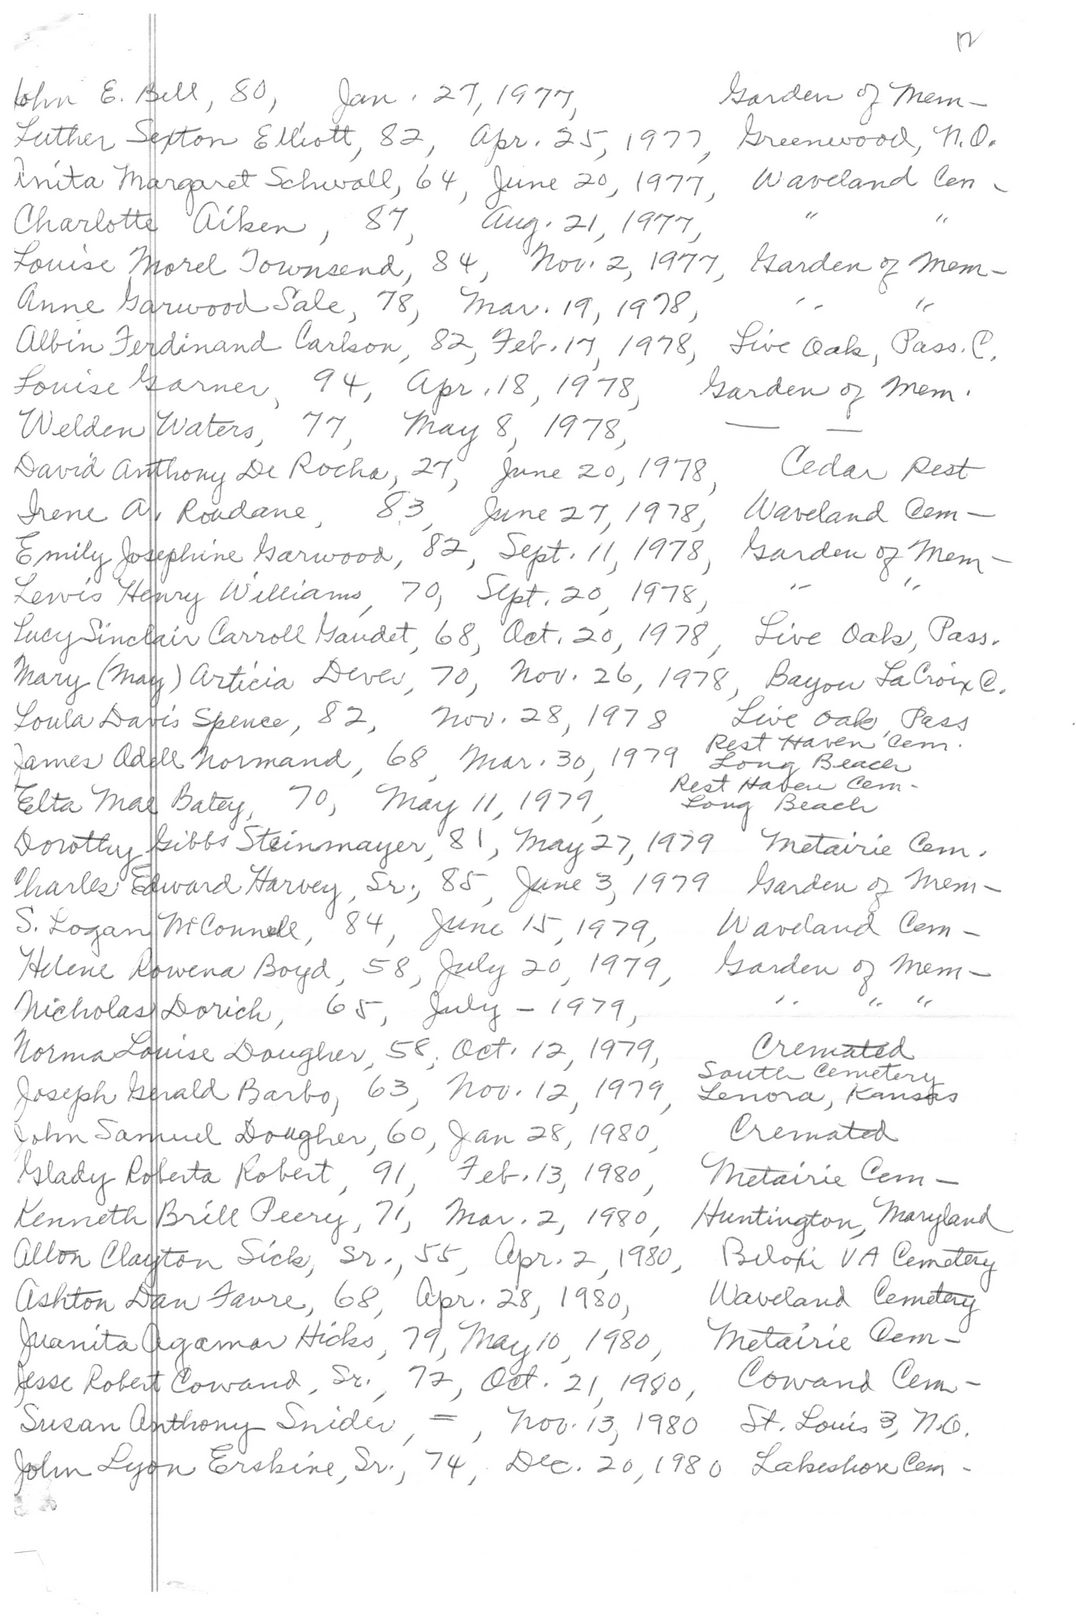 12
John E. Bell, 80, Jan. 27, 1977, Garden of Mem-
Luther Sexton Elliott, 82, Apr. 25, 1977, Greenwood, N.O.
Anita Margaret Schwall, 64, June 20, 1977, Waveland Cem-
Charlotte Aiken, 87, Aug. 21, 1977, " "
Louise Morel Townsend, 84, Nov. 2, 1977, Garden of Mem-
Anne Garwood Sale, 78, Mar. 19, 1978, " "
Albin Ferdinand Carlson, 82, Feb. 17, 1978, Live Oak, Pass. C.
Louise Garner, 94, Apr. 18, 1978, Garden of Mem.
Welden Waters, 77, May 8, 1978, — —
David Anthony De Rocha, 27, June 20, 1978, Cedar Rest
Irene A. 83, June 27, 1978, Waveland Cem-
Emily Josephine Garwood, 82, Sept. 11, 1978, Garden of Mem-
Lewis Henry Williams, 70, Sept. 20, 1978, " "
Lucy Sinclair Carroll Gaudet, 68, Oct. 20, 1978, Live Oak, Pass.
Mary (May) Articia 70, Nov. 26, 1978, Bayou LaCroix C.
Loula Davis Spence, 82, Nov. 28, 1978 Live Oak, Pass
Rest Haven Cem.
James Odell Normand, 68, Mar. 30, 1979 Long Beach
Rest Haven Cem-
Elta Mae Batey, 70, May 11, 1979, Long Beach
Dorothy Gibbs Steinmayer, 81, May 27, 1979 Metairie Cem.
Charles Edward Harvey, Sr., 85, June 3, 1979 Garden of Mem-
S. Logan McConnell, 84, June 15, 1979, Waveland Cem-
Helene Rowena Boyd, 58, July 20, 1979, Garden of Mem-
Nicholas Dorich, 65, July - 1979, " " "
Norma Louise Dougher, 58, Oct. 12, 1979, Cremated
South Cemetery
Joseph Gerald Barbo, 63, Nov. 12, 1979, Lenora, Kansas
John Samuel Dougher, 60, Jan 28, 1980, Cremated
Glady Roberta Robert, 91, Feb. 13, 1980, Metairie Cem-
Kenneth Brill Peery, 71, Mar. 2, 1980, Huntington, Maryland
Allon Clayton Sick, Sr., 55, Apr. 2, 1980, Biloxi VA Cemetery
Ashton Dan Favre, 68, Apr. 28, 1980, Waveland Cemetery
Juanita Agamar Hicks, 79, May 10, 1980, Metairie Cem-
Jesse Robert Cowand, Sr., 72, Oct. 21, 1980, Cowand Cem-
Susan Anthony Snider, =, Nov. 13, 1980 St. Louis 3, N.O.
John Lyon Erskine, Sr., 74, Dec. 20, 1980 Lakeshore Cem-